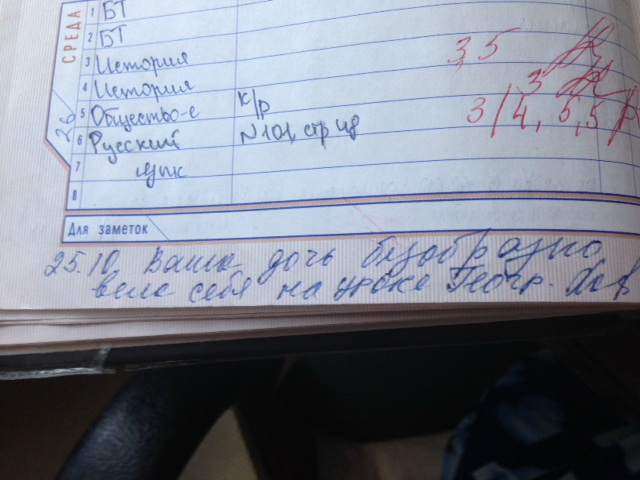 СРЕДА
26
1 БТ
2 БТ
3 История 3,5
4 История 3
5 Общество-е к/р 3/4, 5,5
6 Русский N101, стр
7 язык
8
Для заметок
25.10 Ваша дочь безобразно
вела себя на уроке Геогр.